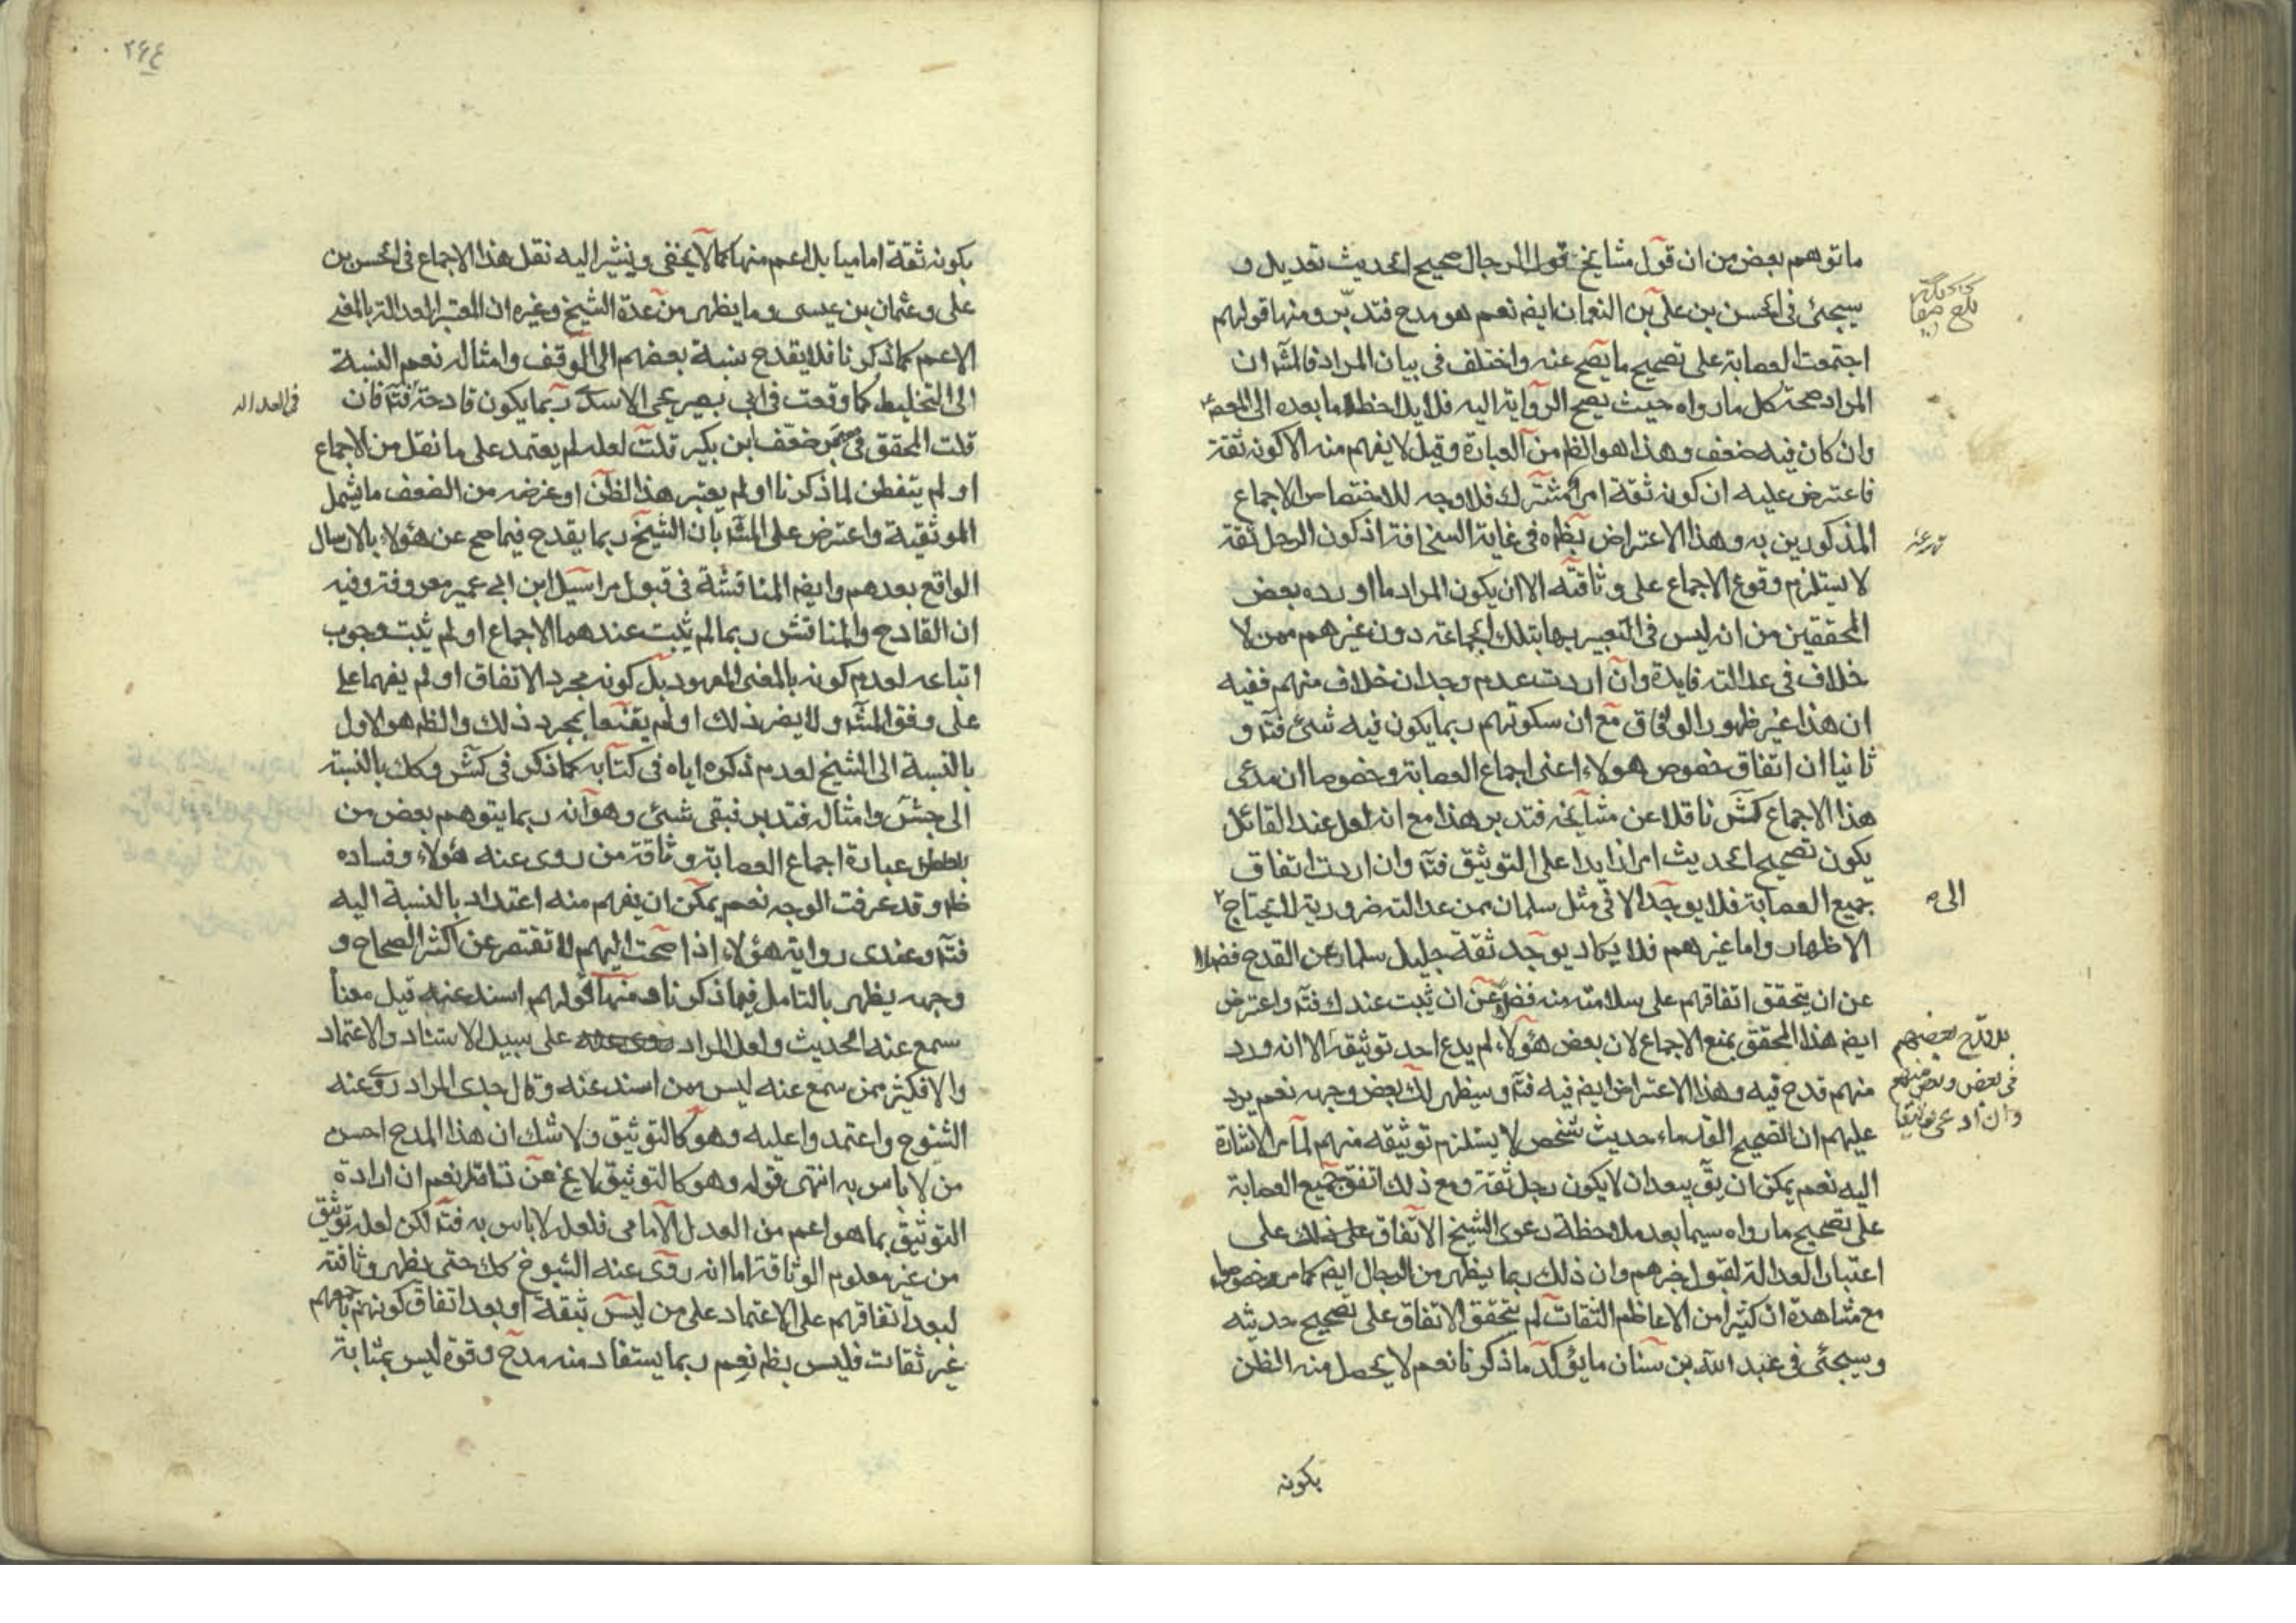 ما توهم بعض من ان قول مشايخ قول الرجال صحيح الحديث تعديل و
سيجئ فى الحسن بن على بن النعمان ايض نعم هو مدح فتدبر ومنها قولهم
اجتمعت العصابة على تصحيح ما يصح عنه واختلف فى بيان المراد فالمشه ان
المراد صحة كل ما رواه حيث يصح الرواية اليه فلا يلاحظ ما بعده الى المعصوم
وان كان فيه ضعف وهذا هو الظم من العبارة وقيل لا يفهم منه الا كونه ثقة
فاعترض عليه ان كونه ثقة امر مشترك فلا وجه للاختصاص الاجماع
المذكورين به وهذا الاعتراض بظاهره فى غاية السخافة اذ كون الرجل ثقة
لا يستلزم وقوع الاجماع على وثاقته الا ان يكون المراد ما اورده بعض
المحققين من انه ليس فى التعبير بها بتلك الجماعة دون غيرهم ممن لا
خلاف فى عدالته فايدة وان اردت عدم وجدان خلاف منهم ففيه
ان هذا غير ظهور الوفاق مع ان سكوتهم ربما يكون فيه شئ فتأ و
ثانيا ان اتفاق خصوص هولاء اعنى اجماع العصابة وخصوصا ان مدعى
هذا الاجماع كش ناقلا عن مشايخه فتدبر هذا مع انه لعل عند القائل
يكون تصحيح الحديث امرا زايدا على التوثيق فتأ وان اردت اتفاق
جميع العصابة فلا يوجد الا فى مثل سلمان ممن عدالته ضرورية لا يحتاج
الى
الاظهار واما غيرهم فلا يكاد يوجد ثقة جليل سلما عن القدح فضلا
عن ان يتحقق اتفاقهم على سلامته منه فضلا عن ان يثبت عندك فتأ واعترض
ايض هذا المحقق بمنع الاجماع لان بعض هؤلاء لم يدع احد توثيقه الا انه ورد
بل قدح بعضهم
فى بعض وبعض منهم
وان ادعى توثيقه
منهم قدح فيه وهذا الاعتراض ايض فيه فتأ وسيظهر لك بعض وجهه نعم يرد
عليهم ان الصحيح القدماء حديث شخص لا يستلزم توثيقه منهم لما مر الاشارة
اليه نعم يمكن ان يق يبعد ان لا يكون رجل ثقة ومع ذلك اتفق جميع العصابة
على تصحيح ما رواه سيما بعد ملاحظة دعوى الشيخ الاتفاق على ذلك على
اعتبار العدالة لقبول خبرهم وان ذلك ربما يظهر من الرجال ايض كما مر وخصوصا
مع مشاهدة ان كثيرا من الاعاظم الثقات لم يتحقق الاتفاق على تصحيح حديثه
وسيجئ فى عبد الله بن سنان ما يؤكد ما ذكرنا نعم لا يحصل منه الظن
بكونه
٢۶۴
بكونه ثقة اماميا بل اعم منها كما لا يخفى ويشير اليه نقل هذا الاجماع فى الحسن بن
على وعثمان بن عيسى وما يظهر من عدة الشيخ وغيره ان المعتبر العدالة بالمعنى
الاعم كما ذكرنا فلا يقدح نسبة بعضهم الى الوقف وامثاله نعم النسبة
الى التخليط كما وقعت فى ابى بصير يحيى الاسدى ربما يكون قادحة فتأ فان
فى العدالة
قلت المحقق فى ضعف ابن بكير قلت لعله لم يعتمد على ما نقل من الاجماع
او لم يتفطن لما ذكرنا او لم يعتبر هذا الظن او غرضه من الضعف ما يشمل
الموثقية واعترض على المشه بان الشيخ ربما يقدح فيما صح عن هؤلاء بالارسال
الواقع بعدهم وايض المناقشة فى قبول مراسيل ابن ابى عمير معروفة وفيه
ان القادح والمناقش ربما لم يثبت عندهما الاجماع او لم يثبت وجوب
اتباعه لعدم كونه بالمعنى المعهود بل كونه مجرد الاتفاق او لم يفهما على
على وفق المشه ولا يضر ذلك او لم يقنعا بمجرد ذلك والظم هو الاول
بالنسبة الى الشيخ لعدم ذكره اياه فى كتابه كما ذكر فى كش وكك بالنسبة
الى جش وامثاله فتدبر فبقى شئ وهو انه ربما يتوهم بعض من
عبارة اجماع العصابة وثاقة من روى عنه هؤلاء وفساده
ظم وقد عرفت الوجه نعم يمكن ان يفهم منه اعتداد بالنسبة اليه
فتأ وعندى رواية هؤلاء اذا صحت اليهم لا تقتصر عن اكثر الصحاح و
وجهه يظهر بالتامل فيما ذكرنا ومنها قولهم اسند عنه قيل معناه
سمع عنه الحديث ولعل المراد على سبيل الاستناد والاعتماد
والا فكثير ممن سمع عنه ليس ممن اسند عنه وقال جدى المراد روى عنه
الشيوخ واعتمدوا عليه وهو كالتوثيق ولا شك ان هذا المدح احسن
من لا باس به انتهى قوله وهو كالتوثيق لا يخ عن تامل نعم ان اراده
التوثيق بما هو اعم من العدل الامامى فلعل لا باس به فتأ لكن لعله توثيق
من غير معلوم الوثاقة اما انه روى عنه الشيوخ كك حتى يظهر وثاقته
لبعد اتفاقهم على الاعتماد على من ليس بثقة او بعد اتفاق كونهم باجمعهم
غير ثقات فليس بظم نعم ربما يستفاد منه مدح وقوة ليس بمثابة